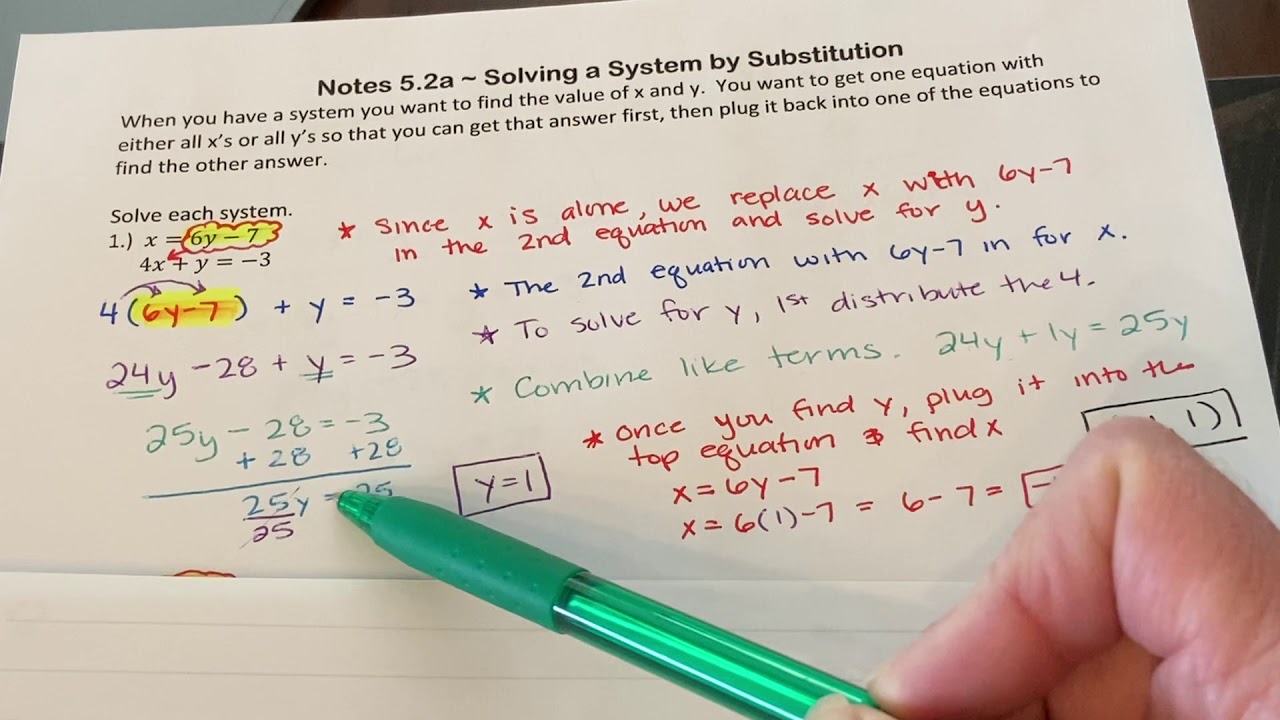 Notes 5.2a ~ Solving a System by Substitution
When you have a system you want to find the value of x and y. You want to get one equation with
either all x's or all y's so that you can get that answer first, then plug it back into one of the equations to
find the other answer.
Solve each system.
1.) x = 6y − 7
4x + y = −3
4(6y-7) + y = -3
24y -28 + y = -3
25y - 28 = -3
+ 28 +28
25y = 25
25
y=1
* Since x is alone, we replace x with 6y-7
in the 2nd equation and solve for y.
* The 2nd equation with 6y-7 in for x.
* To solve for y, 1st distribute the 4.
* Combine like terms. 24y + 1y = 25y
* once you find y, plug it into the
top equation & find x
x = 6y - 7
x = 6(1)-7 = 6-7 =
, 1)